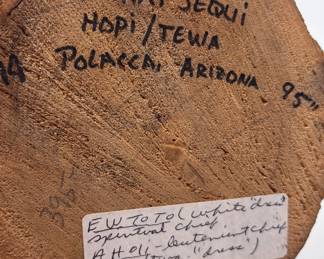 SEQUI
HOPI/TEWA
POLACCA, ARIZONA
95"
395-
EWTOTO (white "dress"
spiritual chief
AHOLI - lieutenant chief
"dress")